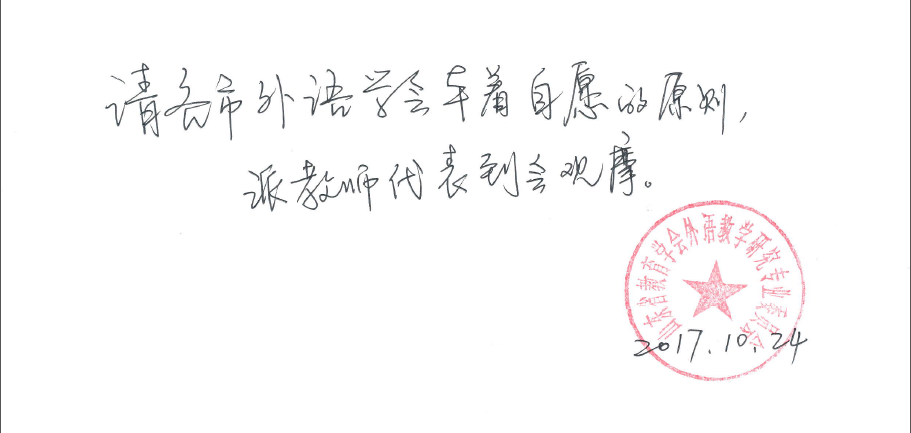 请各市外语学会本着自愿的原则,
派教师代表到会观摩。
山东省教育学会外语教学研究专业委员会
2017.10.24